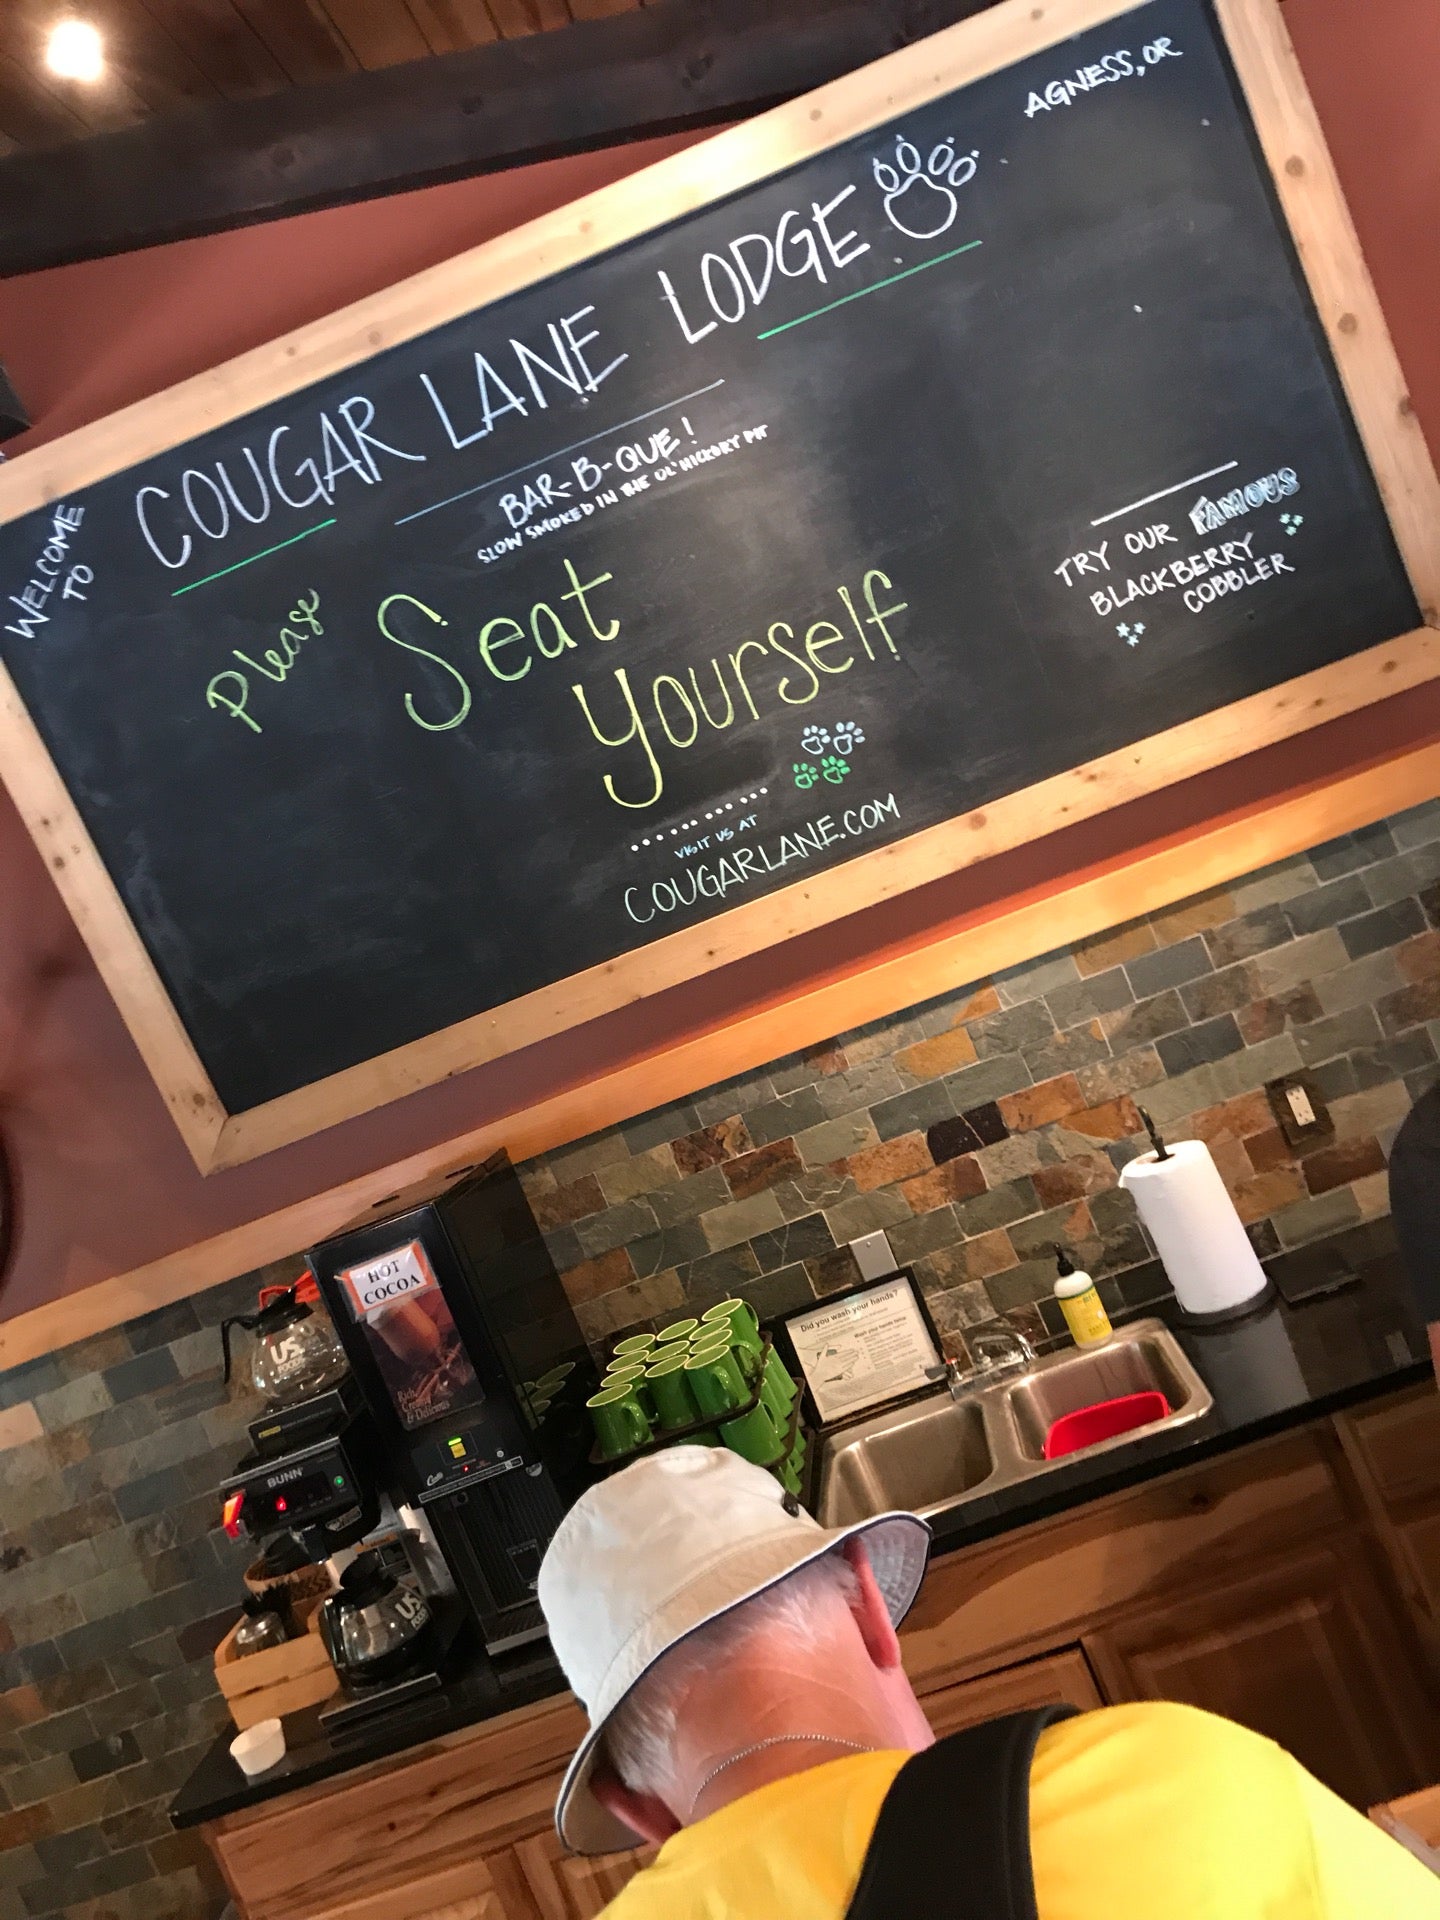 AGNESS, OR
WELCOME
TO
COUGAR LANE LODGE
BAR-B-QUE!
SLOW SMOKED IN THE OL' HICKORY PIT
Please
Seat
Yourself
TRY OUR FAMOUS
BLACKBERRY
COBBLER
VISIT US AT
COUGARLANE.COM
HOT
COCOA
Rich,
Creamy
& Delicious
BUNN
US
US
Did you wash your hands?